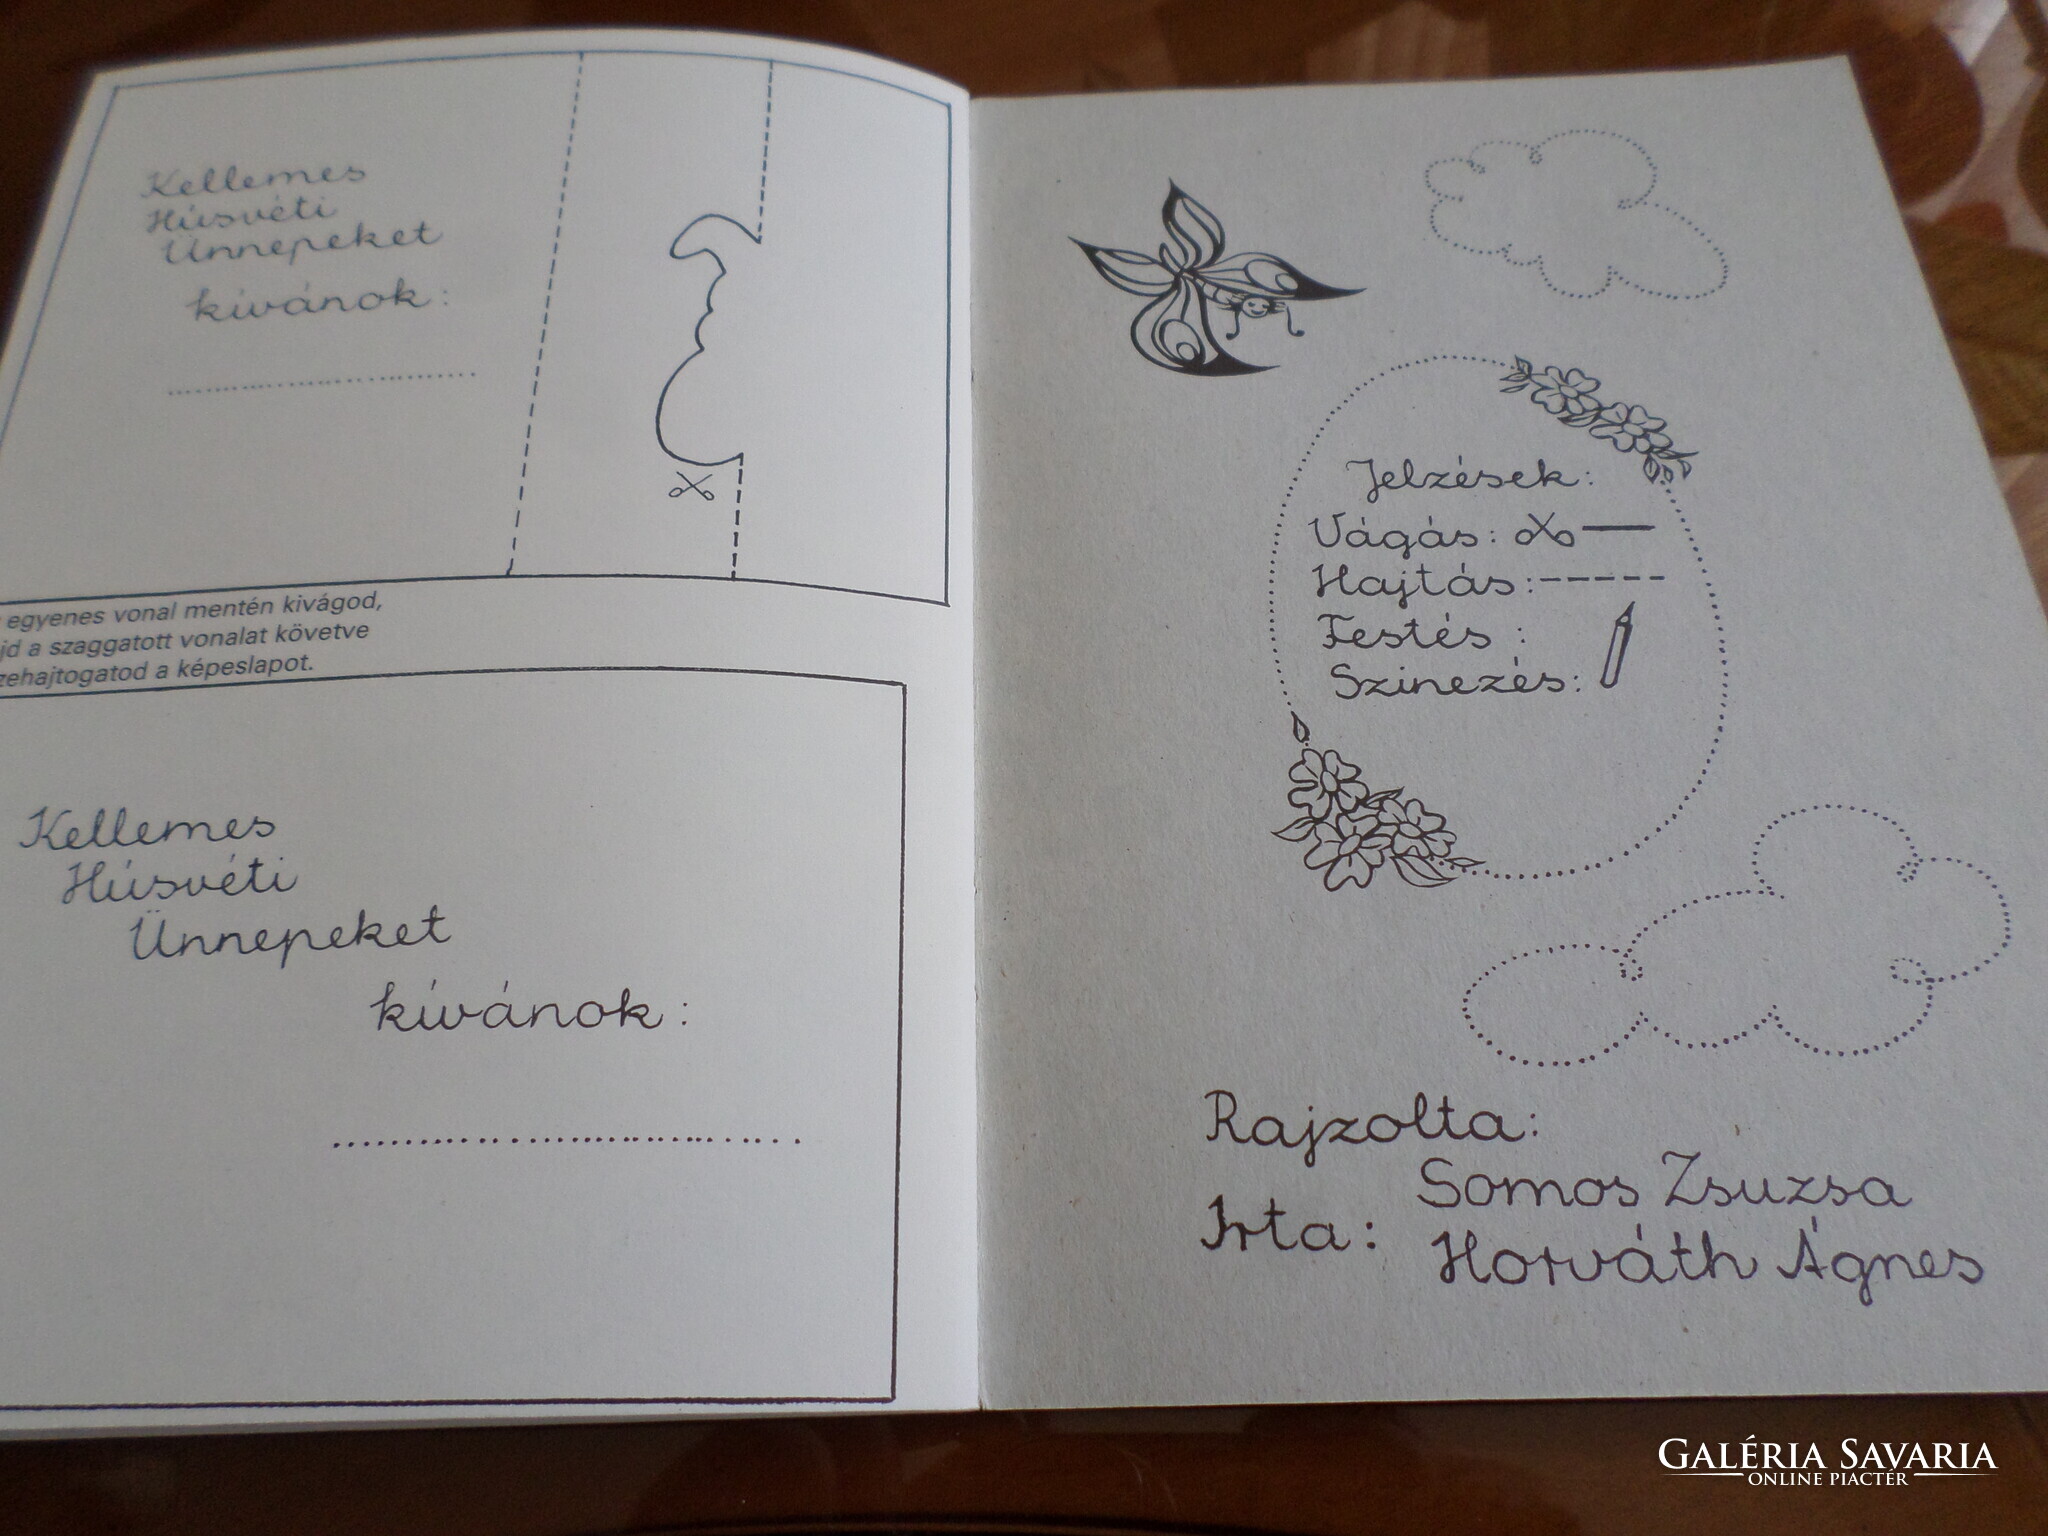 Kellemes
Húsvéti
Ünnepeket
kívánok:
egyenes vonal mentén kivágod,
a szaggatott vonalat követve
a képeslapot.
Kellemes
Húsvéti
Ünnepeket
kívánok:
Jelzések:
Vágás:
Hajtás:
Festés:
Szinezés:
Rajzolta:
Somos Zsuzsa
Irta:
Horváth Ágnes
GALÉRIA SAVARIA
ONLINE PIACTÉR